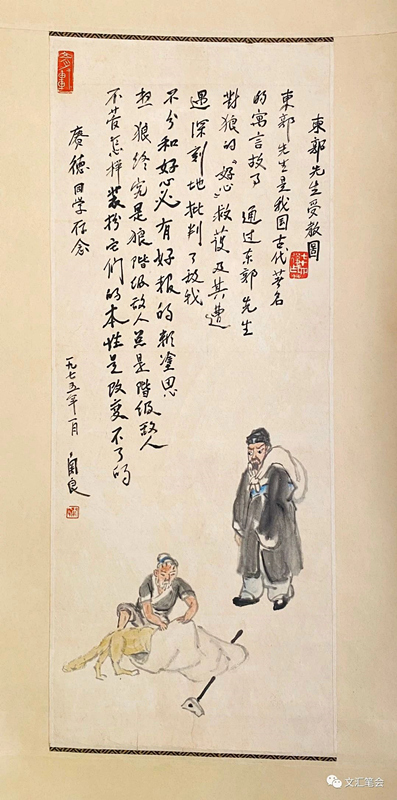 東郭先生受教圖
東郭先生是我国古代著名
的寓言故事 通过东郭先生
對狼的"好心"救護及其遭
遇深刻地批判了敌我
不分和好心必有好报的糊塗思
想 狼终究是狼階级敌人总是階级敌人
不管怎样装扮它们的本性是改变不了的
赓德同学存念
一九七五年一月 自良
文汇笔会